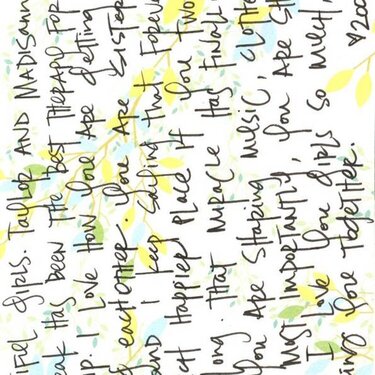 iful girls. Taylor and Madisonn
eak has been the best therapy for
p. I love how you are getting
g eachother. You are sister
and I keep saying that forev
at happier place if you two
long. That miracle has finall
You are sharing music, clothe
Most importantly, you are sh
I love you girls so much,
ing you together ♥200